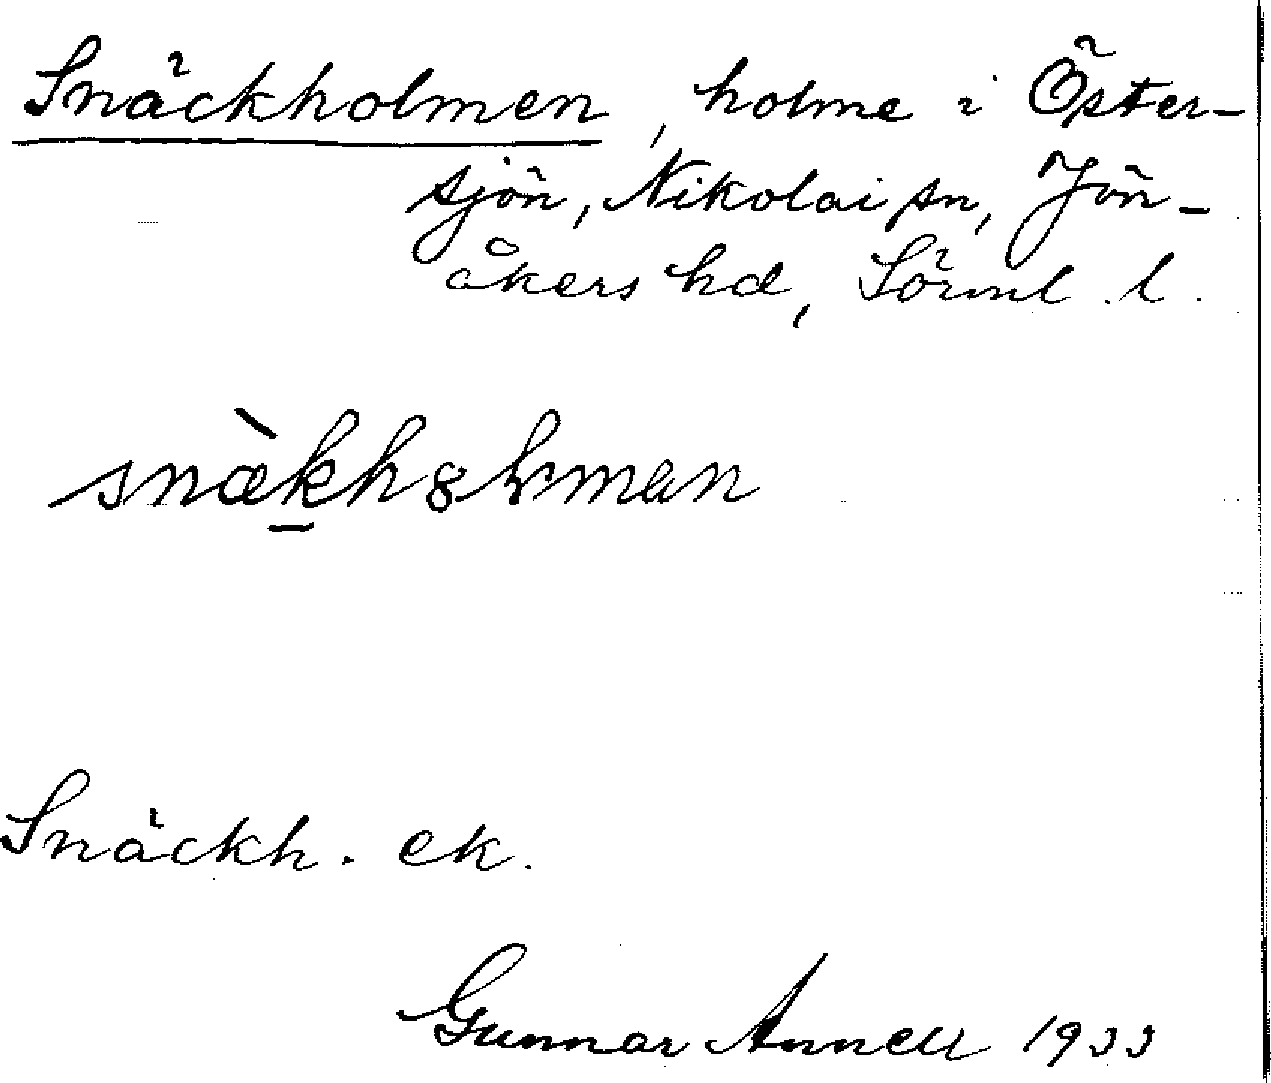 Snäckholmen, holme i Öster-
sjön, Nikolai sn, Jön-
åkers hd, Sörml. l.
snæ̀k̲hȣlman
Snäckh. ek.
Gunnar Annell 1933